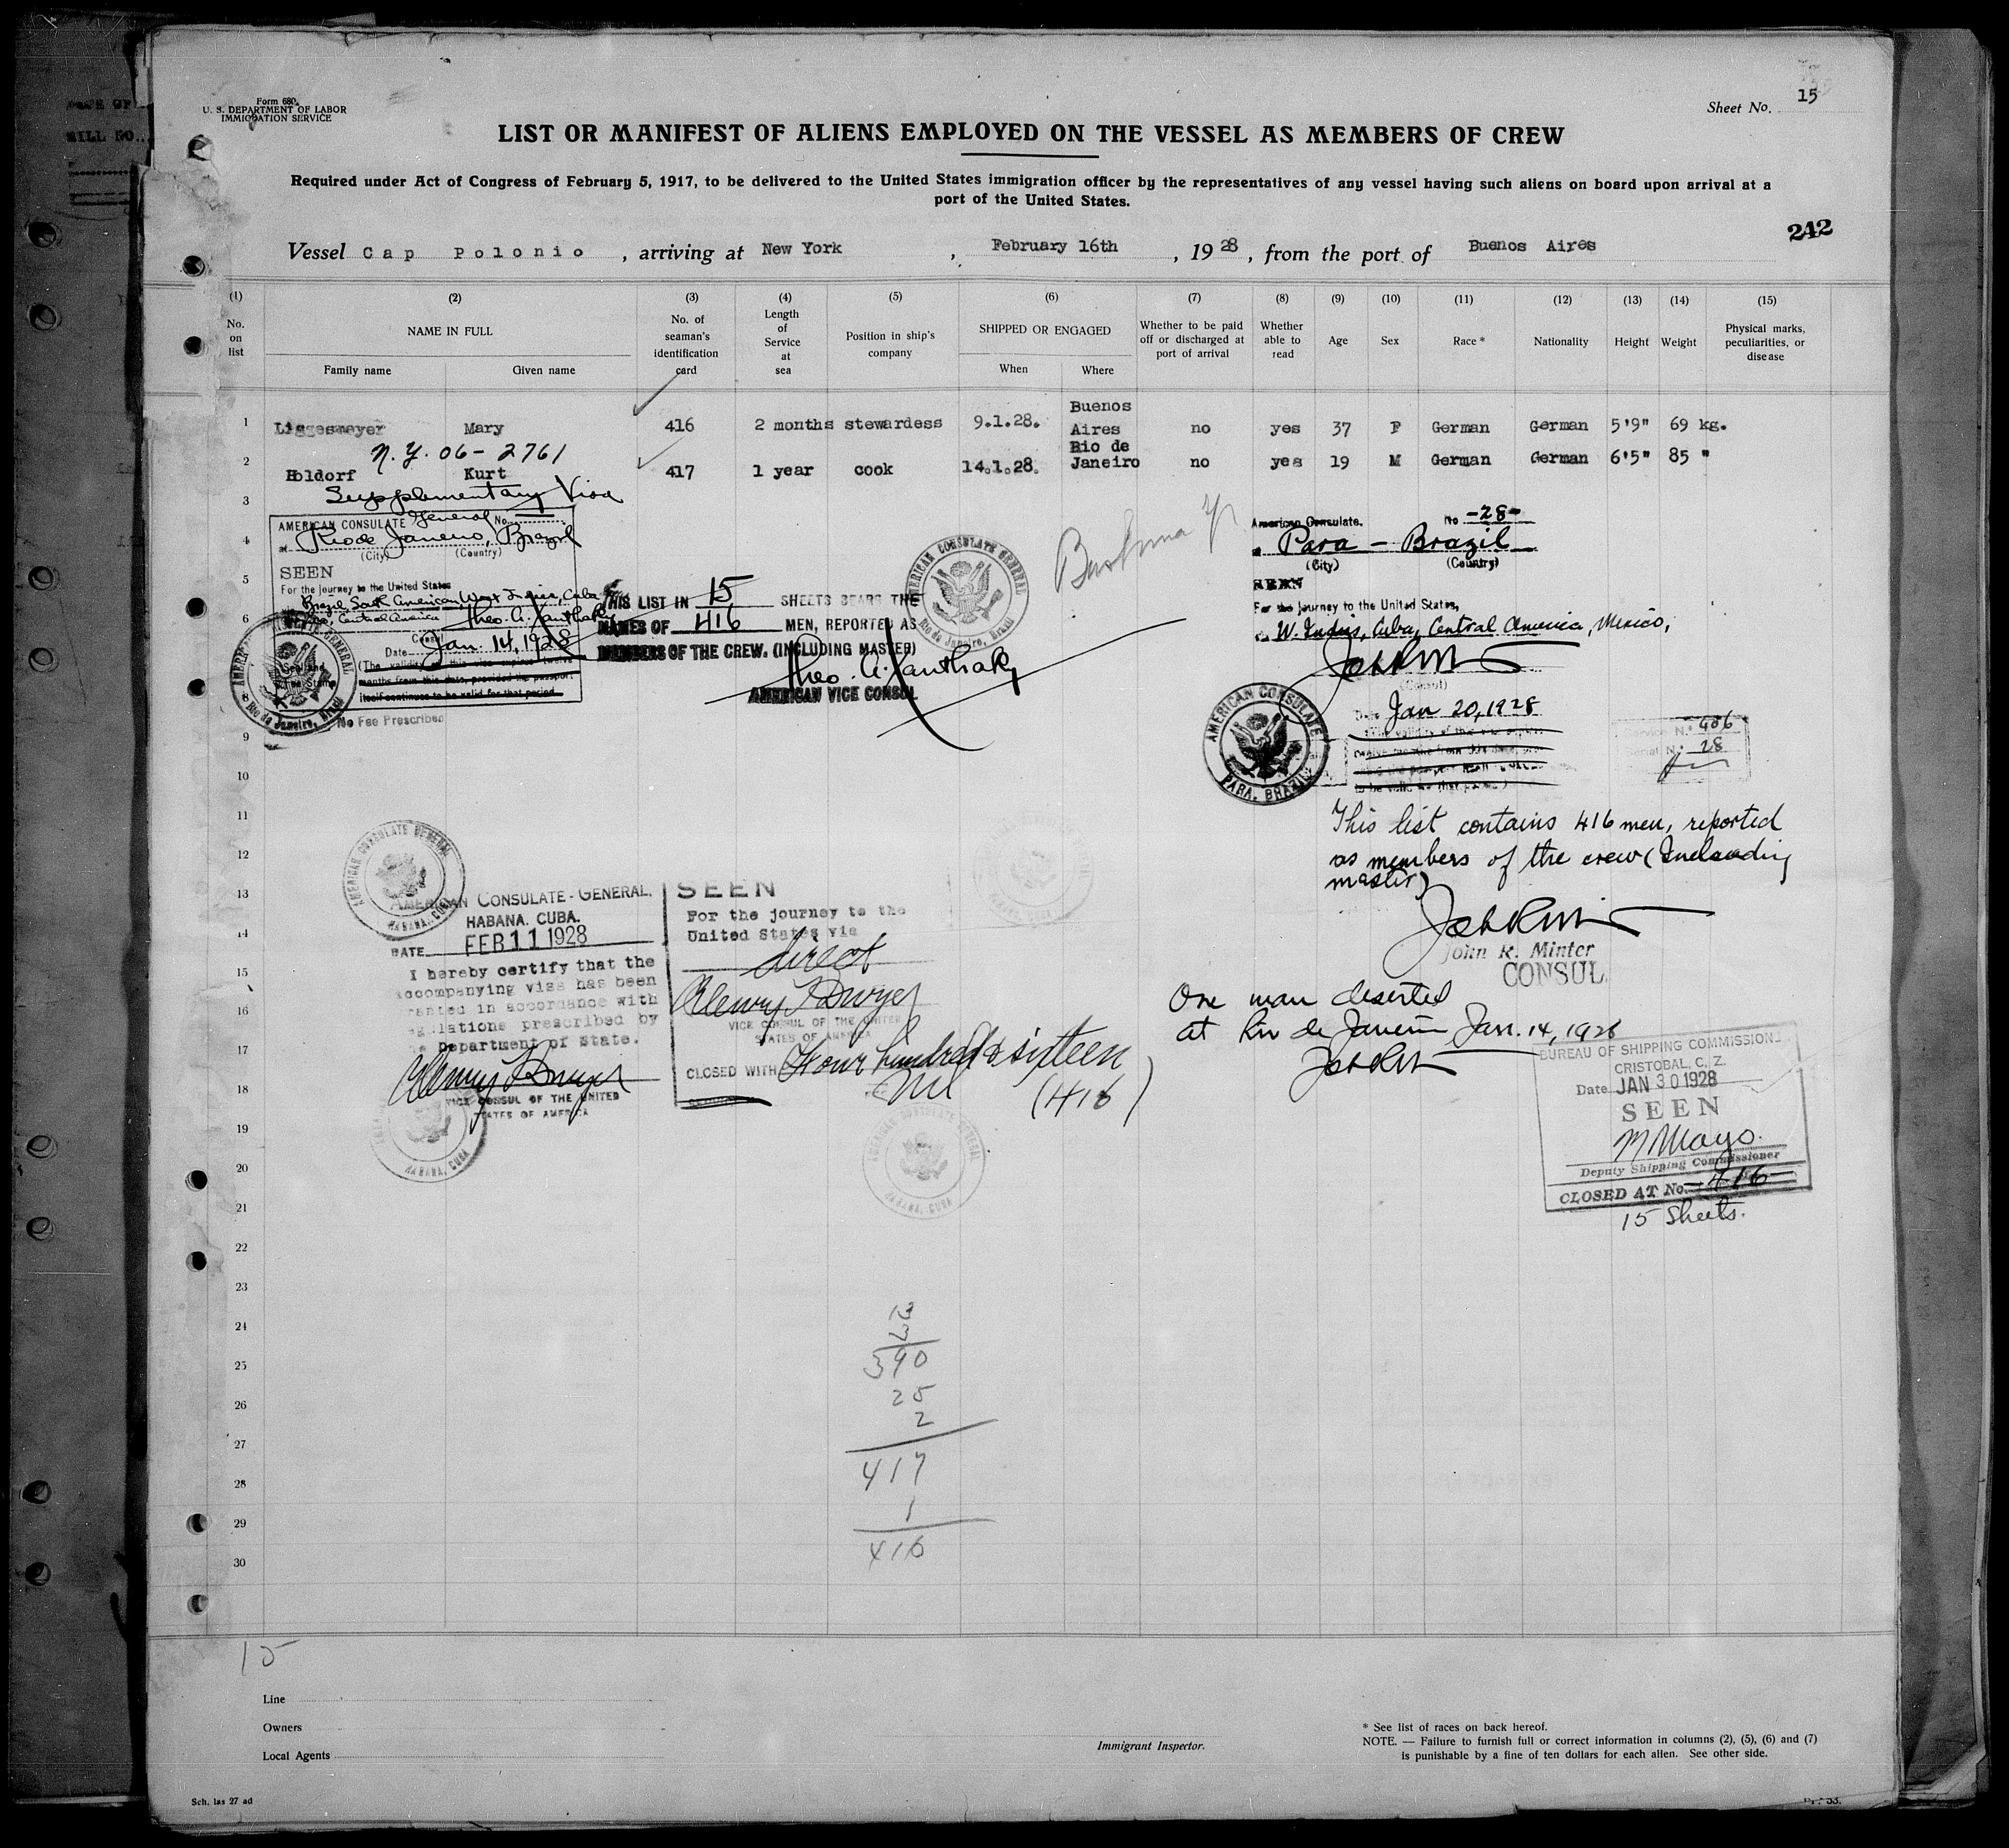 Form 680
U. S. DEPARTMENT OF LABOR
IMMIGRATION SERVICE
Sheet No. 15
LIST OR MANIFEST OF ALIENS EMPLOYED ON THE VESSEL AS MEMBERS OF CREW
Required under Act of Congress of February 5, 1917, to be delivered to the United States immigration officer by the representatives of any vessel having such aliens on board upon arrival at a
port of the United States.
242
Vessel Cap Polonio, arriving at New York, February 16th, 1928, from the port of Buenos Aires
(1) (2) (3) (4) (5) (6) (7) (8) (9) (10) (11) (12) (13) (14) (15)
No. on list
NAME IN FULL
Family name
Given name
No. of seaman's identification card
Length of Service at sea
Position in ship's company
SHIPPED OR ENGAGED
When
Where
Whether to be paid off or discharged at port of arrival
Whether able to read
Age
Sex
Race *
Nationality
Height
Weight
Physical marks, peculiarities, or disease
1 Liggesmeyer Mary 416 2 months stewardess 9.1.28. Buenos Aires no yes 37 F German German 5'9" 69 kg.
N.Y. 06-2761
2 Holdorf Kurt 417 1 year cook 14.1.28. Rio de Janeiro no yes 19 M German German 6'5" 85 "
3
4
5
6
8
9
10
11
12
13
14
15
16
17
18
19
20
21
22
23
24
25
26
27
28
29
30
Supplementary Visa
AMERICAN CONSULATE General No.
at Rio de Janeiro, Brazil
(City) (Country)
SEEN
For the journey to the United States
Brazil, South America, West Indies, Cuba
Central America
Theo. A. Xanthaky
Consul
Date Jan. 14, 1928
(The validity of this visa expires twelve
months from this date, provided the passport
itself continues to be valid for that period
No Fee Prescribed
AMERICAN CONSULATE GENERAL
Rio de Janeiro, Brazil
THIS LIST IN 15 SHEETS BEARS THE
NAMES OF 416 MEN, REPORTED AS
MEMBERS OF THE CREW. (INCLUDING MASTER)
Theo. A. Xanthaky
AMERICAN VICE CONSUL
AMERICAN CONSULATE GENERAL
Rio de Janeiro, Brazil
American Consulate. No -28-
at Para - Brazil
(City) (Country)
SEEN
For the journey to the United States,
via W. Indies, Cuba, Central America, Mexico,
(Consul)
Date Jan 20, 1928
AMERICAN CONSULATE
PARA, BRAZIL
Service No. 406
Serial No. 28
This list contains 416 men, reported
as members of the crew (Including
master)
John R. Minter
CONSUL
One man deserted
at Rio de Janeiro Jan. 14, 1928
AMERICAN CONSULATE GENERAL
HABANA, CUBA
AMERICAN CONSULATE-GENERAL,
HABANA, CUBA.
DATE FEB 11 1928
I hereby certify that the
accompanying visa has been
granted in accordance with
regulations prescribed by
the Department of State.
VICE CONSUL OF THE UNITED
STATES OF AMERICA
HABANA, CUBA
SEEN
For the journey to the
United States via
direct
VICE CONSUL OF THE UNITED
STATES OF AMERICA
CLOSED WITH Four hundred & sixteen
(416)
HABANA, CUBA
BUREAU OF SHIPPING COMMISSIONER
CRISTOBAL, C. Z.
Date JAN 30 1928
SEEN
M Mayo
Deputy Shipping Commissioner
CLOSED AT No. 416
15 sheets.
390
25
2
417
1
416
15
Line
Owners
Local Agents
Immigrant Inspector.
* See list of races on back hereof.
NOTE. — Failure to furnish full or correct information in columns (2), (5), (6) and (7)
is punishable by a fine of ten dollars for each alien. See other side.
Sch. las 27 ad